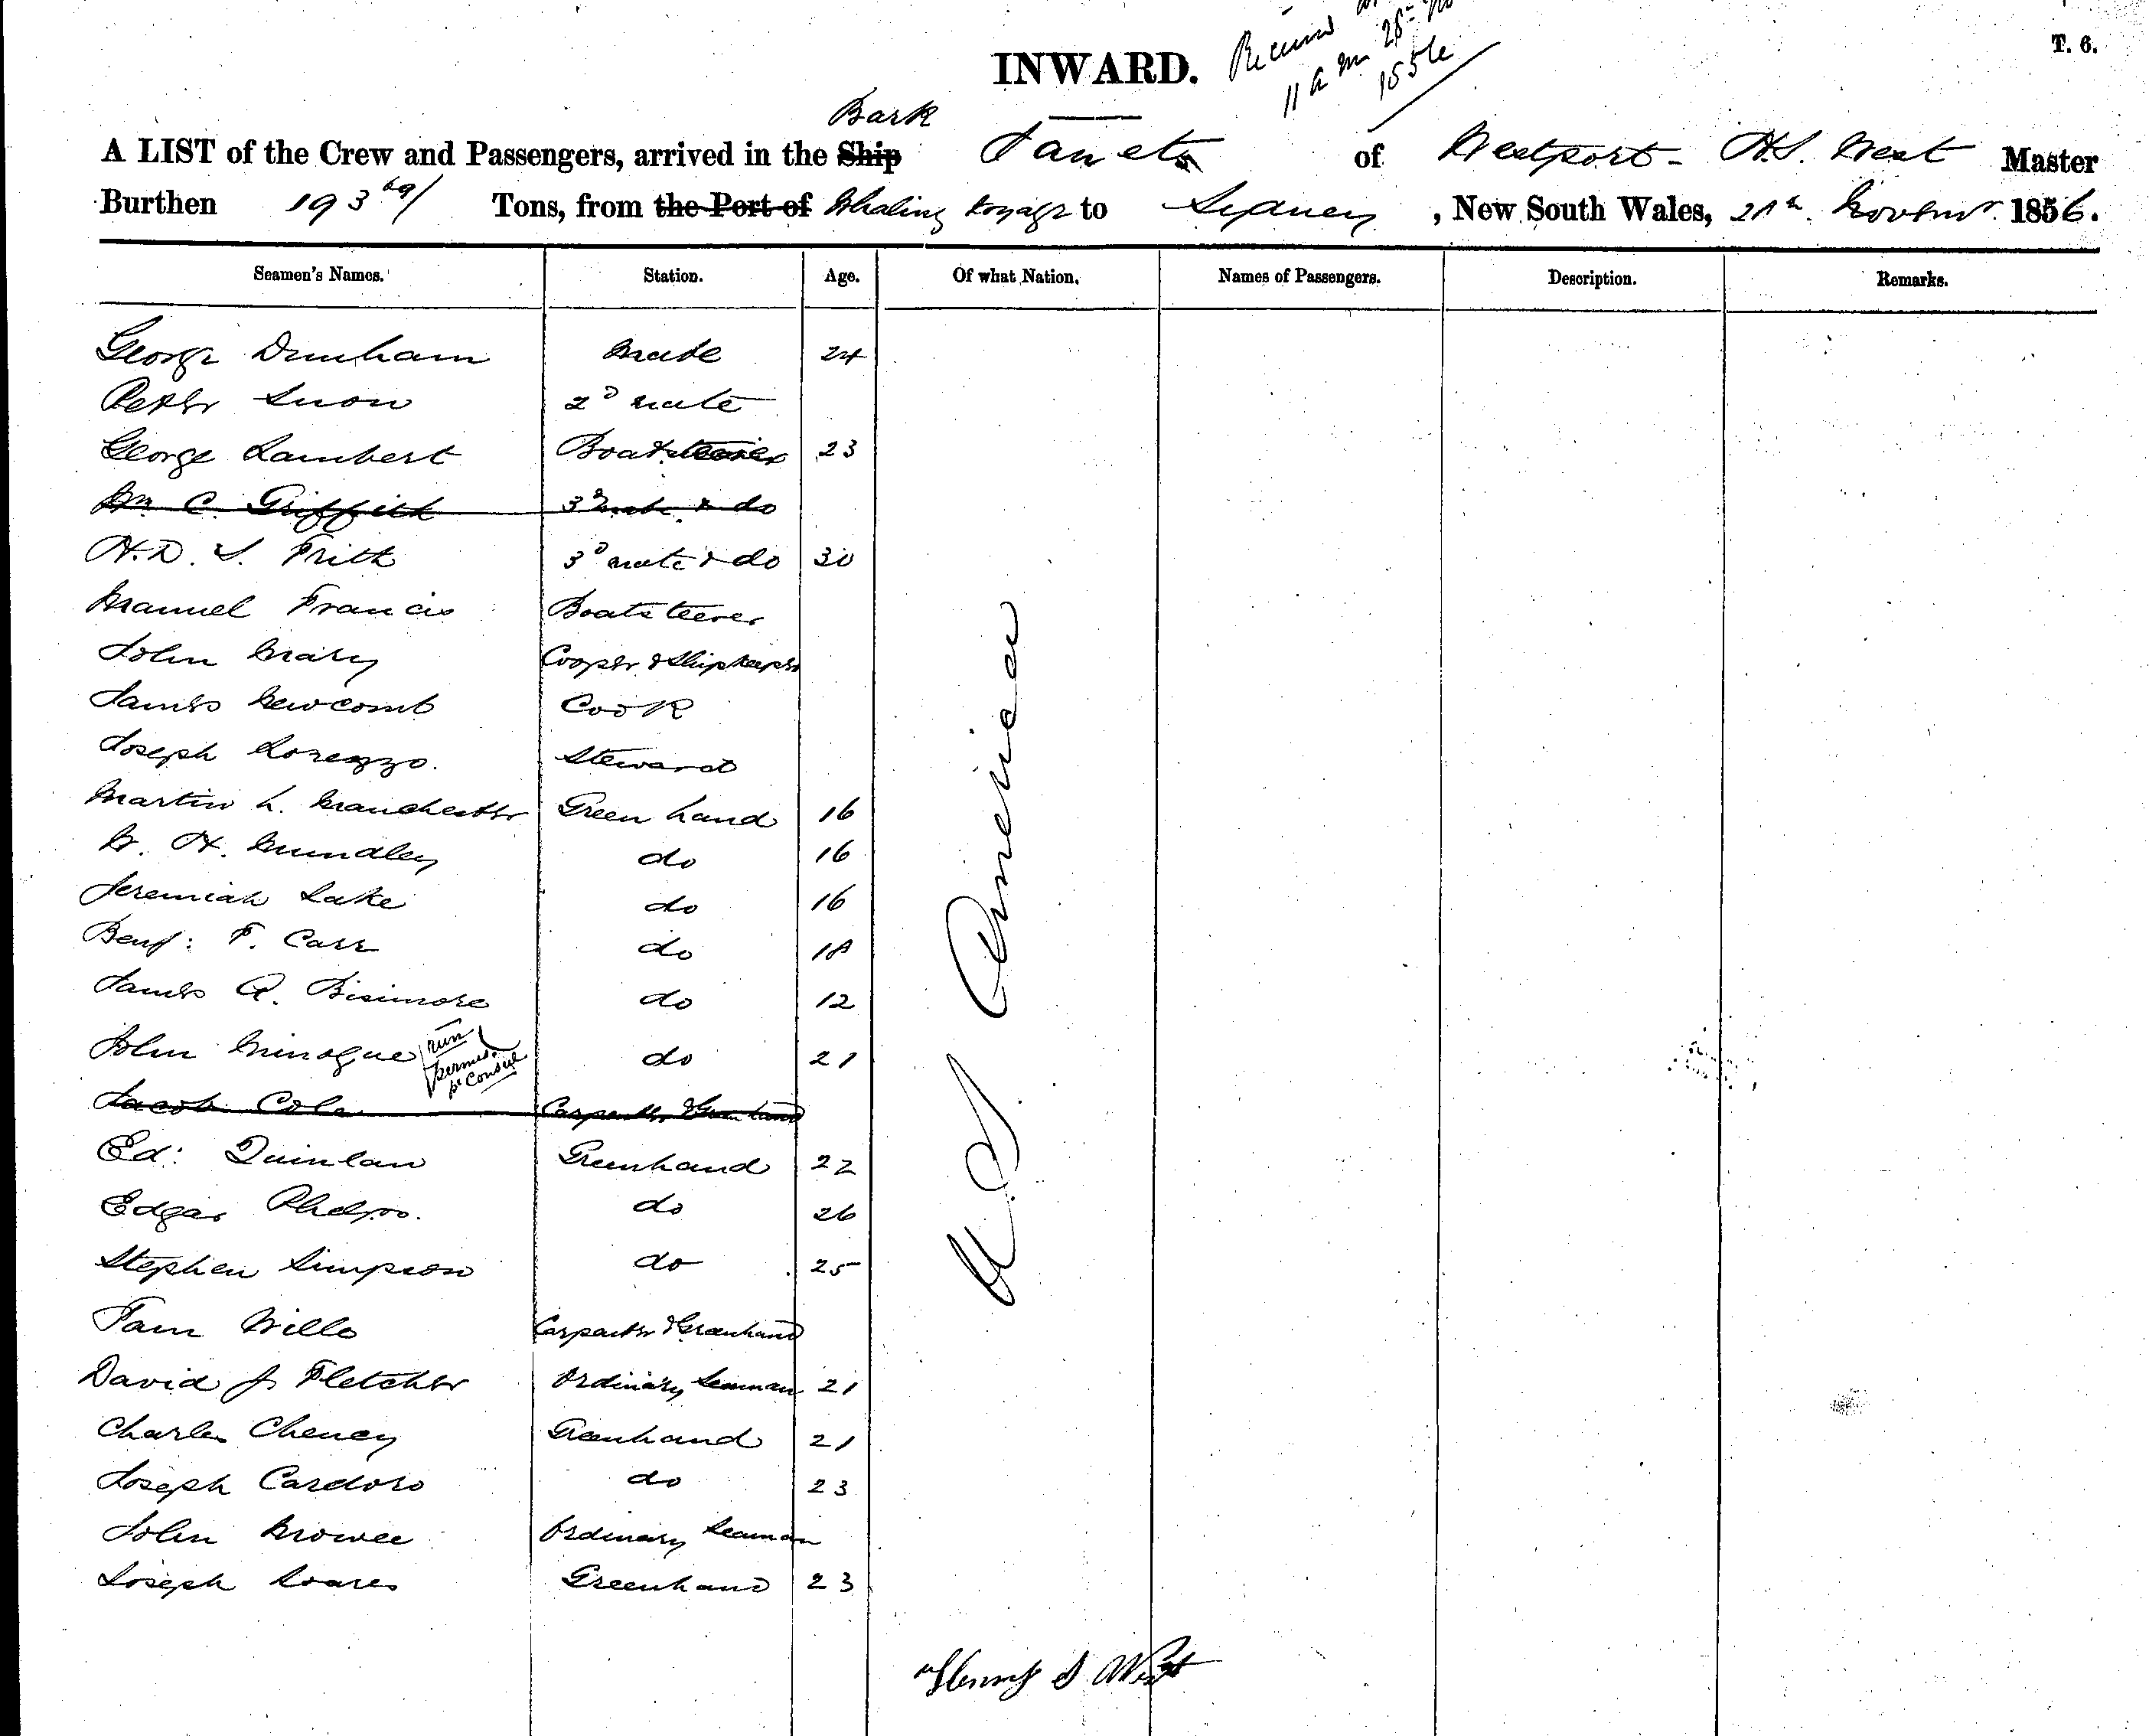 INWARD.
T. 6.
11 a m 28th
1856
Bark
A LIST of the Crew and Passengers, arrived in the Ship Janet of Westport - H.S. West Master
Burthen 193 69/ Tons, from the Port of Whaling voyage to Sydney, New South Wales, 28th Novemr. 1856.
Seamen's Names. Station. Age. Of what Nation. Names of Passengers. Description. Remarks.
George Dunham Mate 24
Peter Snow 2d mate
George Lambert Boatsteerer 23
Wm C. Griffith 3d mate & do
H.D. S. Frith 3d mate & do 30
Manuel Francis Boatsteerer
John Mary Cooper & Shipkeeper
James Newcomb Cook
Joseph Lorenzo. Steward
Martin L. Manchester Green hand 16
W. H. Mundley do 16
Jeremiah Lake do 16
Benj: F. Carr do 18
James A. Bisimore do 12
John Minogue do 21
run
permis.
pr Consul
Jacob Cole Carpenter & Green hand
Ed: Quinlan Greenhand 22
Edgar Phelps. do 26
Stephen Simpson do 25
Tam Wills Carpenter & Greenhand
David J. Fletcher Ordinary Seaman 21
Charles Cheney Greenhand 21
Joseph Cardozo do 23
John Browee Ordinary Seaman
Joseph Soares Greenhand 23
U.S. America
Henry S West